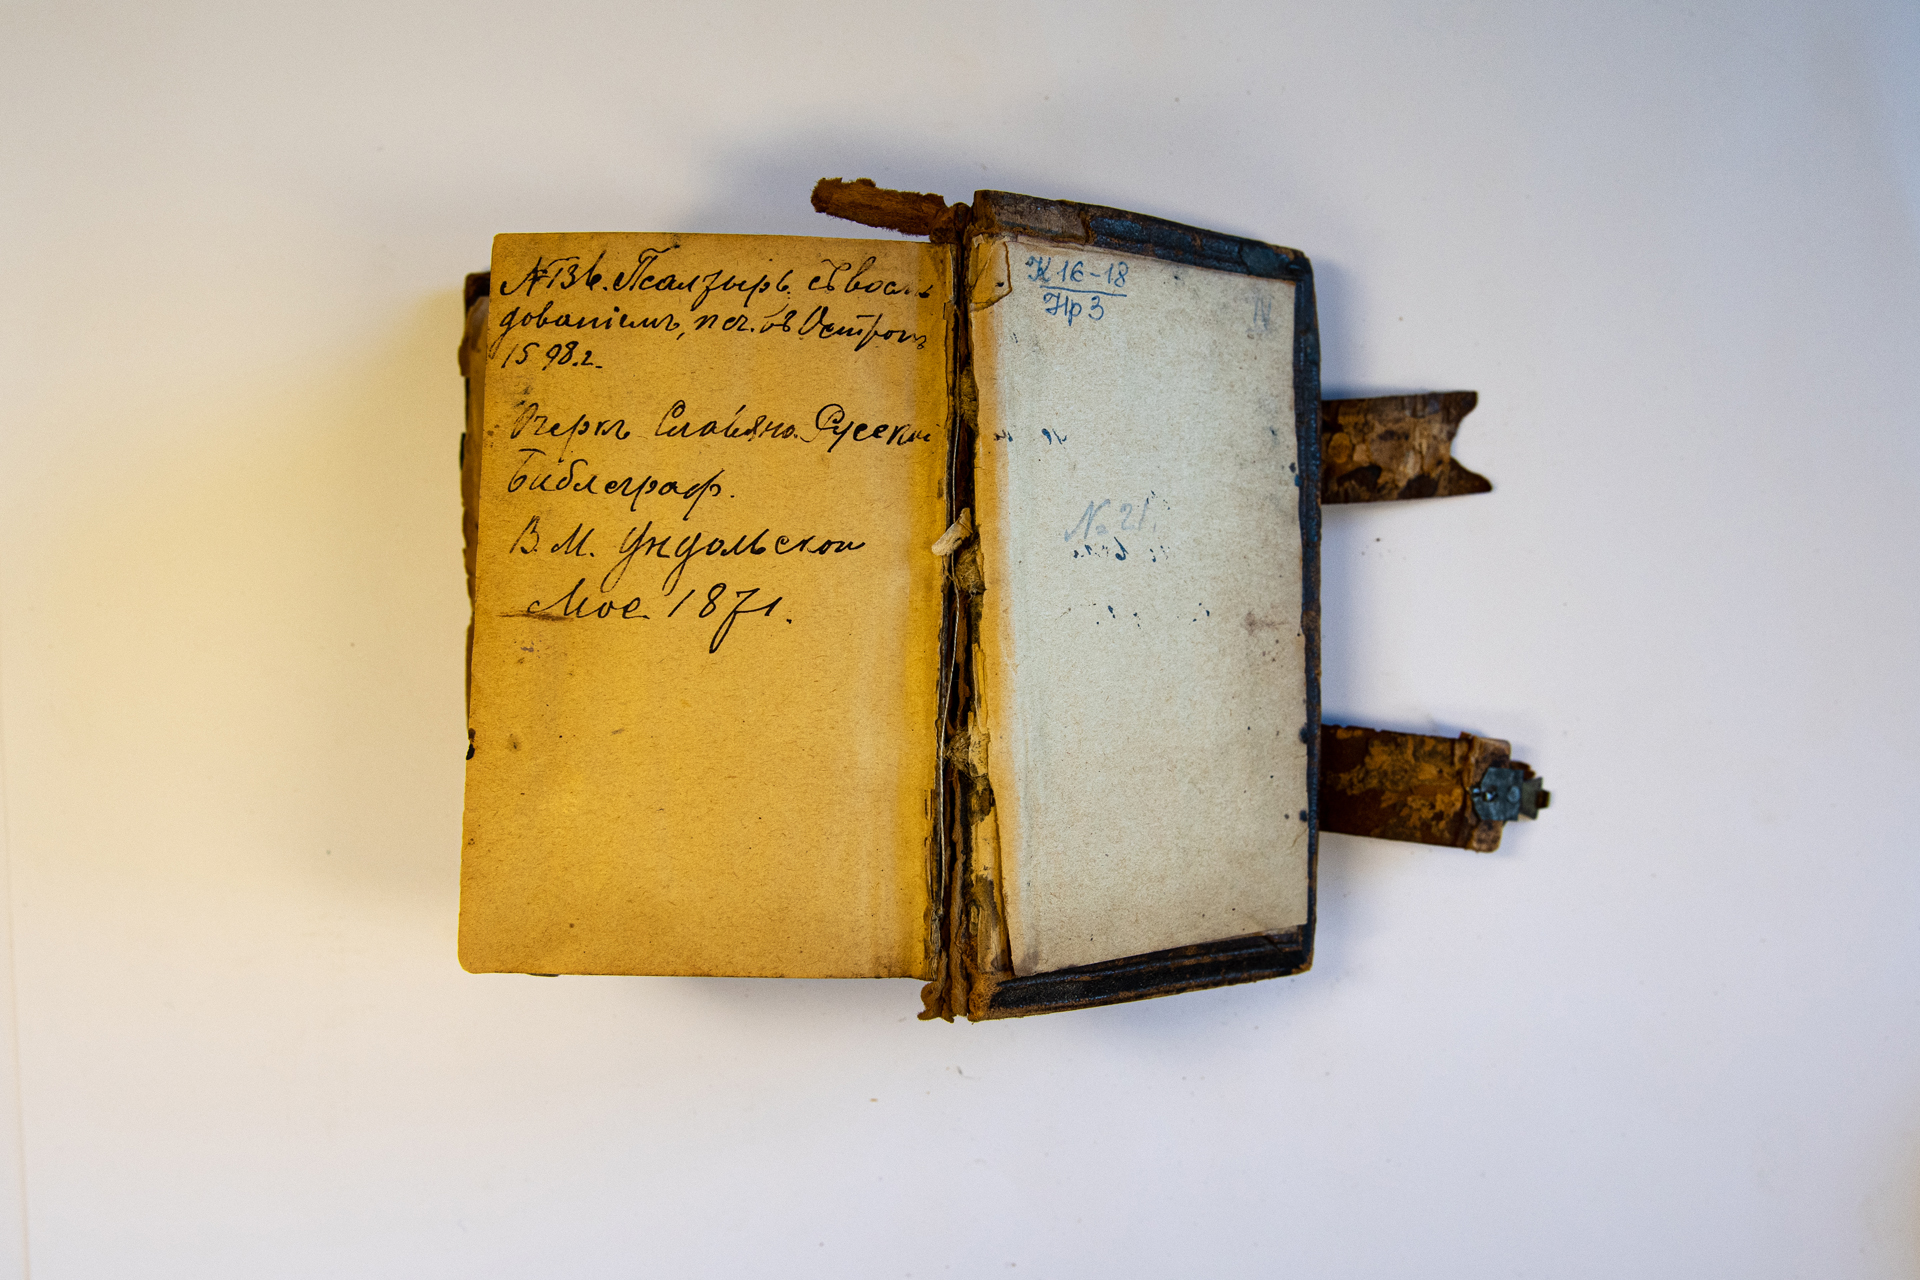 № 136. Псалтырь съ возсл
дованіемъ, печ. въ Острогѣ
1598.г.
Очеркъ Славяно. Русской
Библеграф.
В. М. Ундольской
Мое 1871.
К 16-18
Нр 3
№ 21.